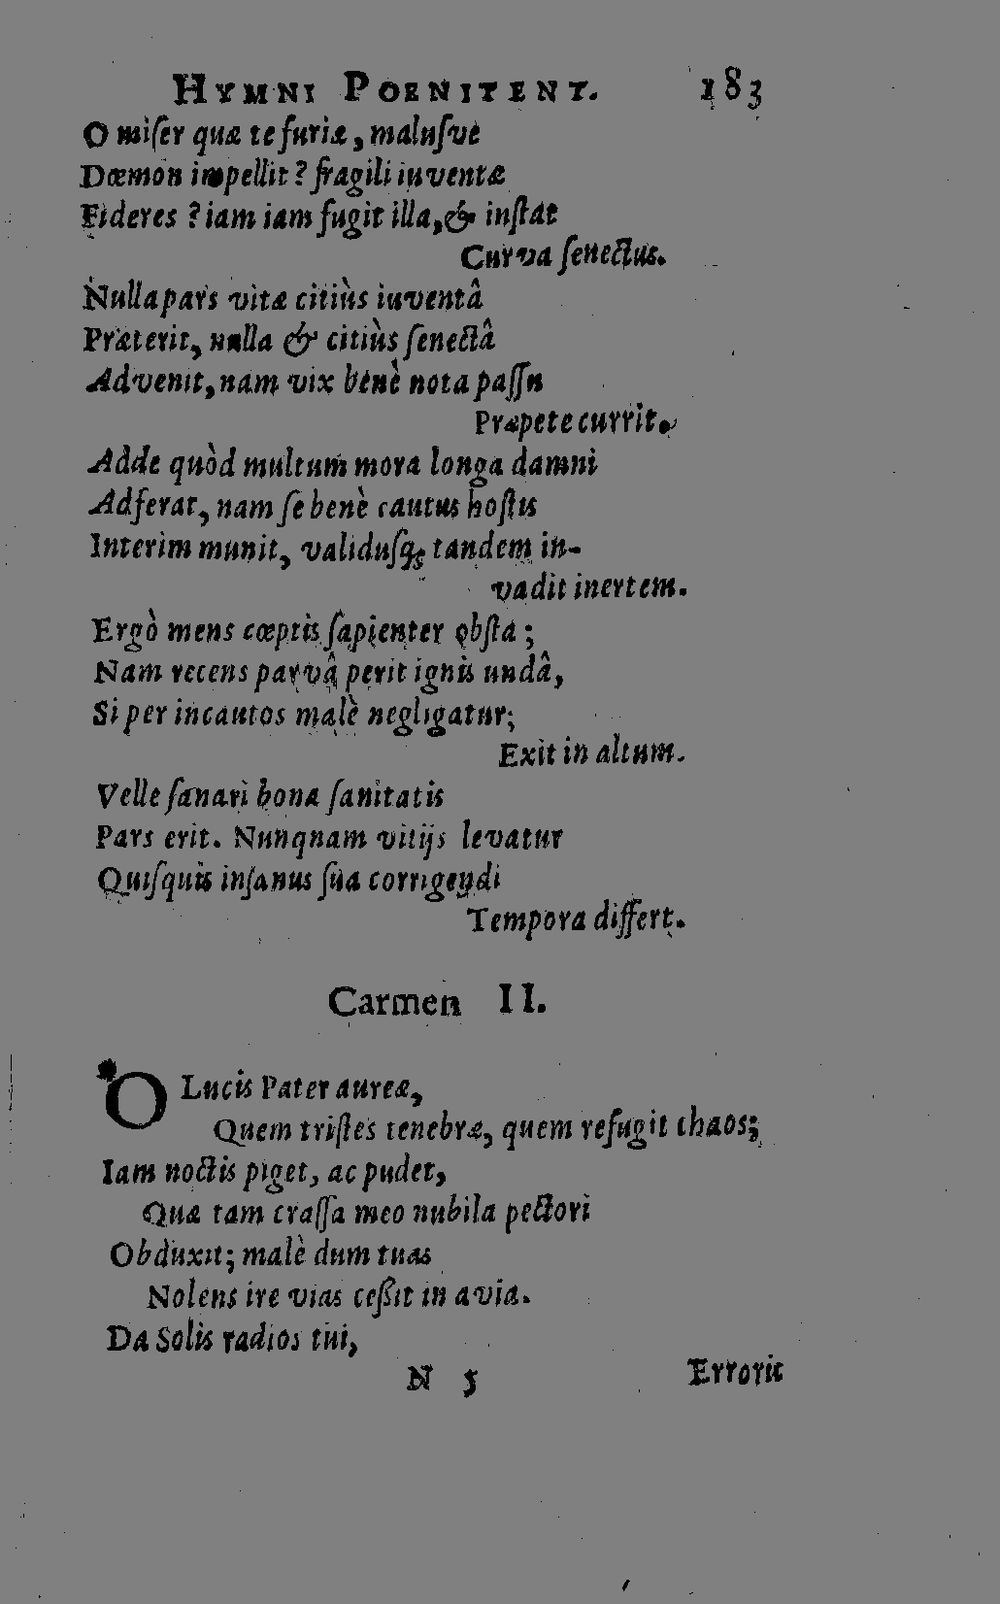 HYMNI POENITENT. 183
O miſer quæ te furiæ, maluſve
Dœmon impellit? fragili iuventæ
Fideres? iam iam fugit illa, & inſtat
Curva ſenectus.
Nulla pars vitæ citiùs iuventâ
Præterit, nulla & citiùs ſenectâ
Advenit, nam vix benè nota paſſu
Præpete currit.
Adde quòd multum mora longa damni
Adferat, nam ſe benè cautus hoſtis
Interim munit, validuſq; tandem in-
vadit inertem.
Ergò mens cœptis ſapienter obſta;
Nam recens parvâ perit ignis undâ,
Si per incautos malè negligatur;
Exit in altum.
Velle ſanari bona ſanitatis
Pars erit. Nunquam vitijs levatur
Quiſquis inſanus ſua corrigendi
Tempora differt.
Carmen II.
O Lucis Pater aureæ,
Quem triſtes tenebræ, quem refugit chaos;
Iam noctis piget, ac pudet,
Quæ tam craſſa meo nubila pectori
Obduxit; malè dum tuas
Nolens ire vias ceßit in avia.
Da Solis radios tui,
N 5 Erroris